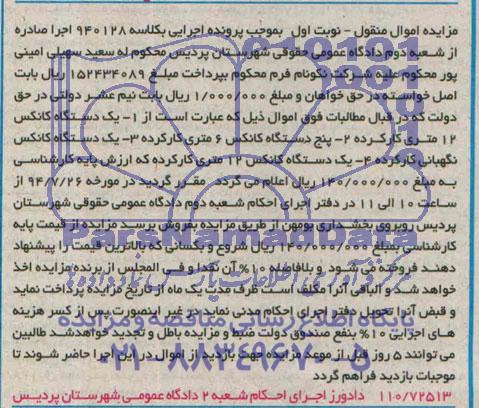 مزایده اموال منقول - نوبت اول بموجب پرونده اجرایی بکلاسه ۹۴۰۱۲۸ اجرا صادره
از شعبه دوم دادگاه عمومی حقوقی شهرستان پردیس محکوم له سعید سهیلی امینی
پور محکوم علیه شرکت نکونام فرم محکوم بپرداخت مبلغ ۱۵۲۴۳۴۰۸۹ ریال بابت
اصل خواسته در حق خواهان و مبلغ ۱/۰۰۰/۰۰۰ ریال بابت نیم عشر دولتی در حق
دولت که در قبال مطالبات فوق اموال ذیل که عبارت است از ۱- یک دستگاه کانکس
۱۲ متری کارکرده ۲- پنج دستگاه کانکس ۶ متری کارکرده ۳- یک دستگاه کانکس
نگهبانی کارکرده ۴- یک دستگاه کانکس ۱۲ متری کارکرده که ارزش پایه کارشناسی
به مبلغ ۱۴۰/۰۰۰/۰۰۰ ریال اعلام می گردد مقرر گردید در مورخه ۹۴/۷/۲۶ از
ساعت ۱۰ الی ۱۱ در دفتر اجرای احکام شعبه دوم دادگاه عمومی حقوقی شهرستان
پردیس روبروی بخشداری بومهن از طریق مزایده بفروش برسد مزایده از قیمت پایه
کارشناسی بمبلغ ۱۴۰/۰۰۰/۰۰۰ ریال شروع و بکسانی که بالاترین قیمت را پیشنهاد
دهند فروخته می شود و بلافاصله ۱۰% آن نقدا و فی المجلس از برنده مزایده اخذ
خواهد شد و الباقی آنرا مکلف است ظرف مدت یک ماه از تاریخ مزایده پرداخت نماید
و قبض آنرا تحویل دفتر اجرای احکام مدنی نماید در غیر اینصورت پس از کسر هزینه
های اجرایی ۱۰% بنفع صندوق دولت ضبط و مزایده باطل و تجدید خواهد شد طالبین
می توانند ۵ روز قبل از موعد مزایده جهت بازدید از اموال در این اجرا حاضر شوند تا
موجبات بازدید فراهم گردد
۱۱۰/۷۲۵۱۳ دادورز اجرای احکام شعبه ۲ دادگاه عمومی شهرستان پردیس
ParsNamadData
پایگاه اطلاع رسانی مناقصه و مزایده
۰۲۱-۸۸۳۴۹۶۷۰-۵